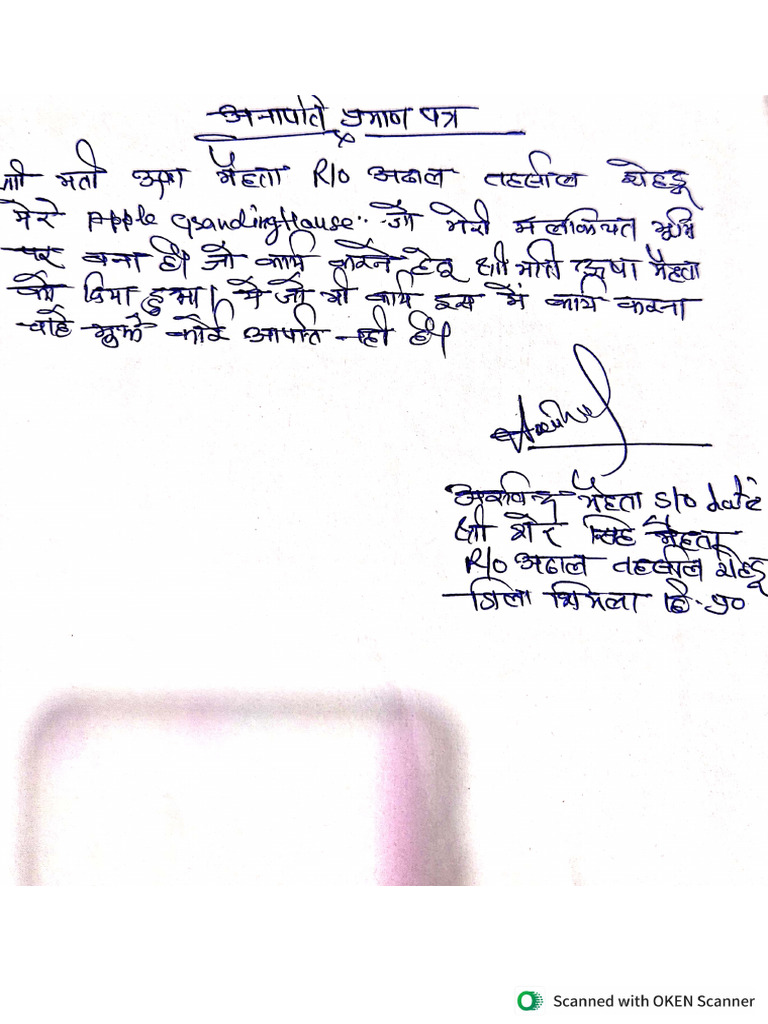 अनापति प्रमाण पत्र
श्री मती उषा मैहता R/o अढाल तहसील रोहडू
मेरे Apple Granding House जो मेरी मलकियत भूमि
पर बना है। जो कार्य करने हेतू श्री मति ऊषा मैहता
को दिया हुआ। ये जो भी कार्य इस में कार्य करना
चाहे मुझे कोई आपति नही है।
अरविन्द मैहता S/o date
श्री शेर सिंह मैहता
R/o अढाल तहसील रोहडू
जिला शिमला हि-प्र०
Scanned with OKEN Scanner